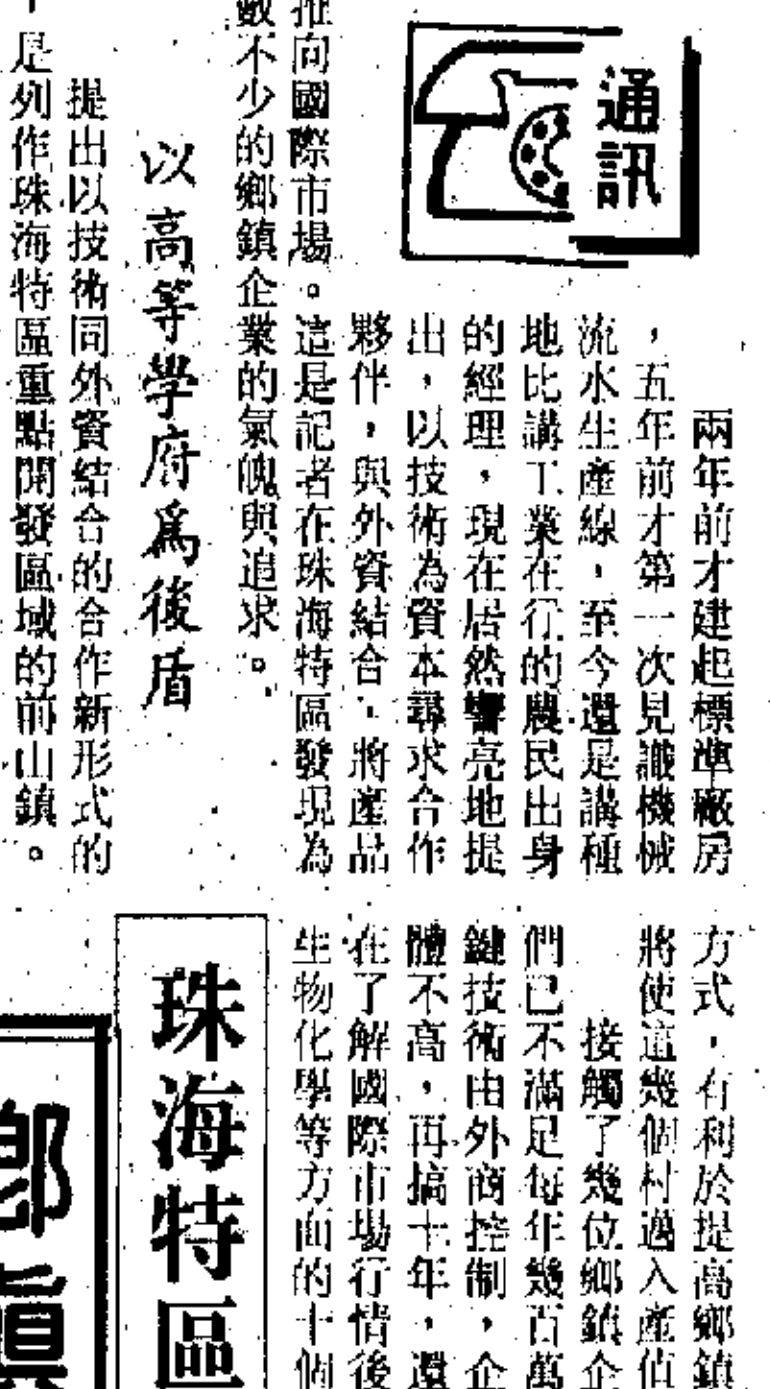 通訊
兩年前才建起標準廠房
，五年前才第一次見識機械
流水生產線，至今還是講種
地比講工業在行的農民出身
的經理，現在居然響亮地提
出，以技術為資本尋求合作
夥伴，與外資結合，將產品
推向國際市場。這是記者在珠海特區發現為
數不少的鄉鎮企業的氣魄與追求。
以高等學府爲後盾
提出以技術同外資結合的合作新形式的
，是列作珠海特區重點開發區域的前山鎮。
方式，有利於提高鄉鎮
將使這幾個村邁入產值
接觸了幾位鄉鎮企
們已不滿足每年幾百萬
鍵技術由外商控制，企
體不高，再搞十年，還
在了解國際市場行情後
生物化學等方面的十個
珠海特區
鄉鎮